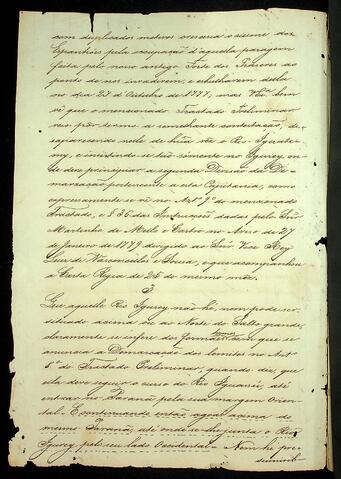 com duplicados motivos cresceria o ciume dos
Espanhoes pela occupação d'aquella paragem
feita pelo nosso antigo Forte dos Prazeres ao
ponto de nos invadirem, e esbulharem delle
no dia 27 d'Outubro de 1777, mas V.Exª bem
vê que o mencionado Tractado Preliminar
nos pôz termo a semelhante contestação, de-
saparecendo nelle de hũa vez o Rio Igurate-
my, e insistindo-se tão sómente no Igurey, on-
de deve principiar a segunda Divisão da De-
marcação pertencente a esta Capitania, como
expressamente se vê no Artº 9º do mencionado
Tractado, e § 36 das Instrucções dadas pelo Snr
Martinho de Mello e Castro no Aviso de 27
de Janeiro de 1779 dirigido ao Snr Vice Rey
Luiz de Vasconcellos e Souza, e que acompanhou
a Carta Regia de 25 do mesmo mez.
3
Que aquelle Rio Igurey não hé, nem pode ser
situado acima ou ao Norte do Salto grande,
claramente se infere dos formaes termos em que se
anuncia a Demarcação dos limites no Artº
8º do Tractado Preliminar, quando diz, que
ella deve seguir o curso do Rio Iguassú, até
entrar no Paraná pela sua margem Orien-
tal: E continuando então agoas acima do
mesmo Paraná, até onde se lhe junta o Rio
Igurey pelo seu lado Occidental. Nem hé pre-